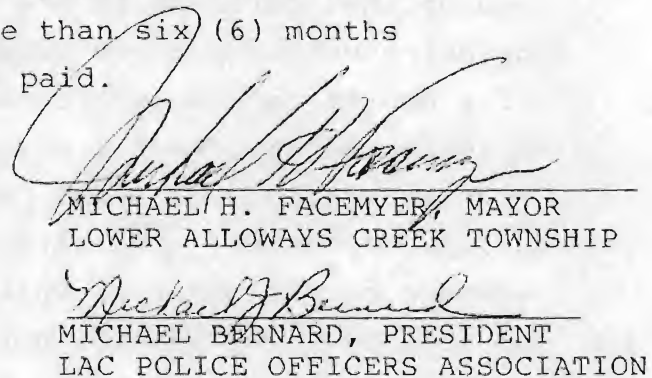 e than six (6) months
paid.
Michael H. Facemyer
MICHAEL H. FACEMYER, MAYOR
LOWER ALLOWAYS CREEK TOWNSHIP
Michael J Bernard
MICHAEL BERNARD, PRESIDENT
LAC POLICE OFFICERS ASSOCIATION